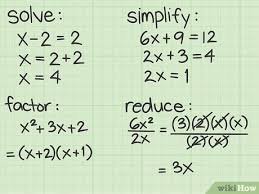 solve:
x-2=2
x=2+2
x=4
simplify:
6x+9=12
2x+3=4
2x=1
factor:
x²+3x+2
=(x+2)(x+1)
reduce:
6x²/2x = (3)(2)(x)(x)/(2)(x)
=3x
wikiHow